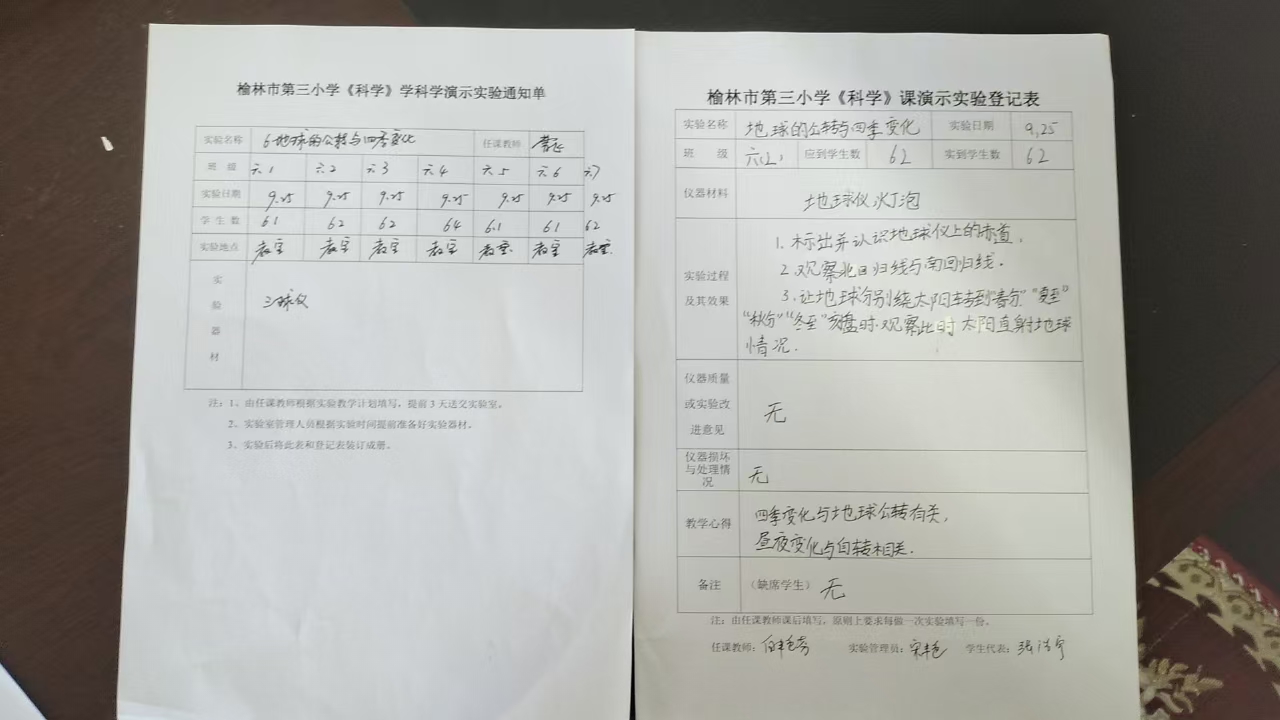 榆林市第三小学《科学》学科学演示实验通知单
实验名称 6.地球的公转与四季变化 任课教师
班 级 六.1 六.2 六.3 六.4 六.5 六.6 六.7
实验日期 9.25 9.25 9.25 9.25 9.25 9.25 9.25
学生数 61 62 62 64 61 61 62
实验地点 教室 教室 教室 教室 教室 教室 教室
实验器材 三球仪
注：1、由任课教师根据实验教学计划填写，提前3天送交实验室。
2、实验室管理人员根据实验时间提前准备好实验器材。
3、实验后将此表和登记表装订成册。
榆林市第三小学《科学》课演示实验登记表
实验名称 地球的公转与四季变化 实验日期 9.25
班 级 应到学生数 62 实到学生数 62
仪器材料 地球仪 灯泡
实验过程
及其效果
1.标出并认识地球仪上的赤道.
2.观察北回归线与南回归线.
3.让地球分别绕太阳转到“春分”“夏至”
“秋分”“冬至”刻盘时.观察此时太阳直射地球
情况.
仪器质量
或实验改
进意见
无
仪器损坏
与处理情
况
无
教学心得
四季变化与地球公转有关,
昼夜变化与自转相关.
备注 （缺席学生） 无
注：由任课教师课后填写，原则上要求每做一次实验填写一份。
任课教师： 实验管理员： 学生代表：